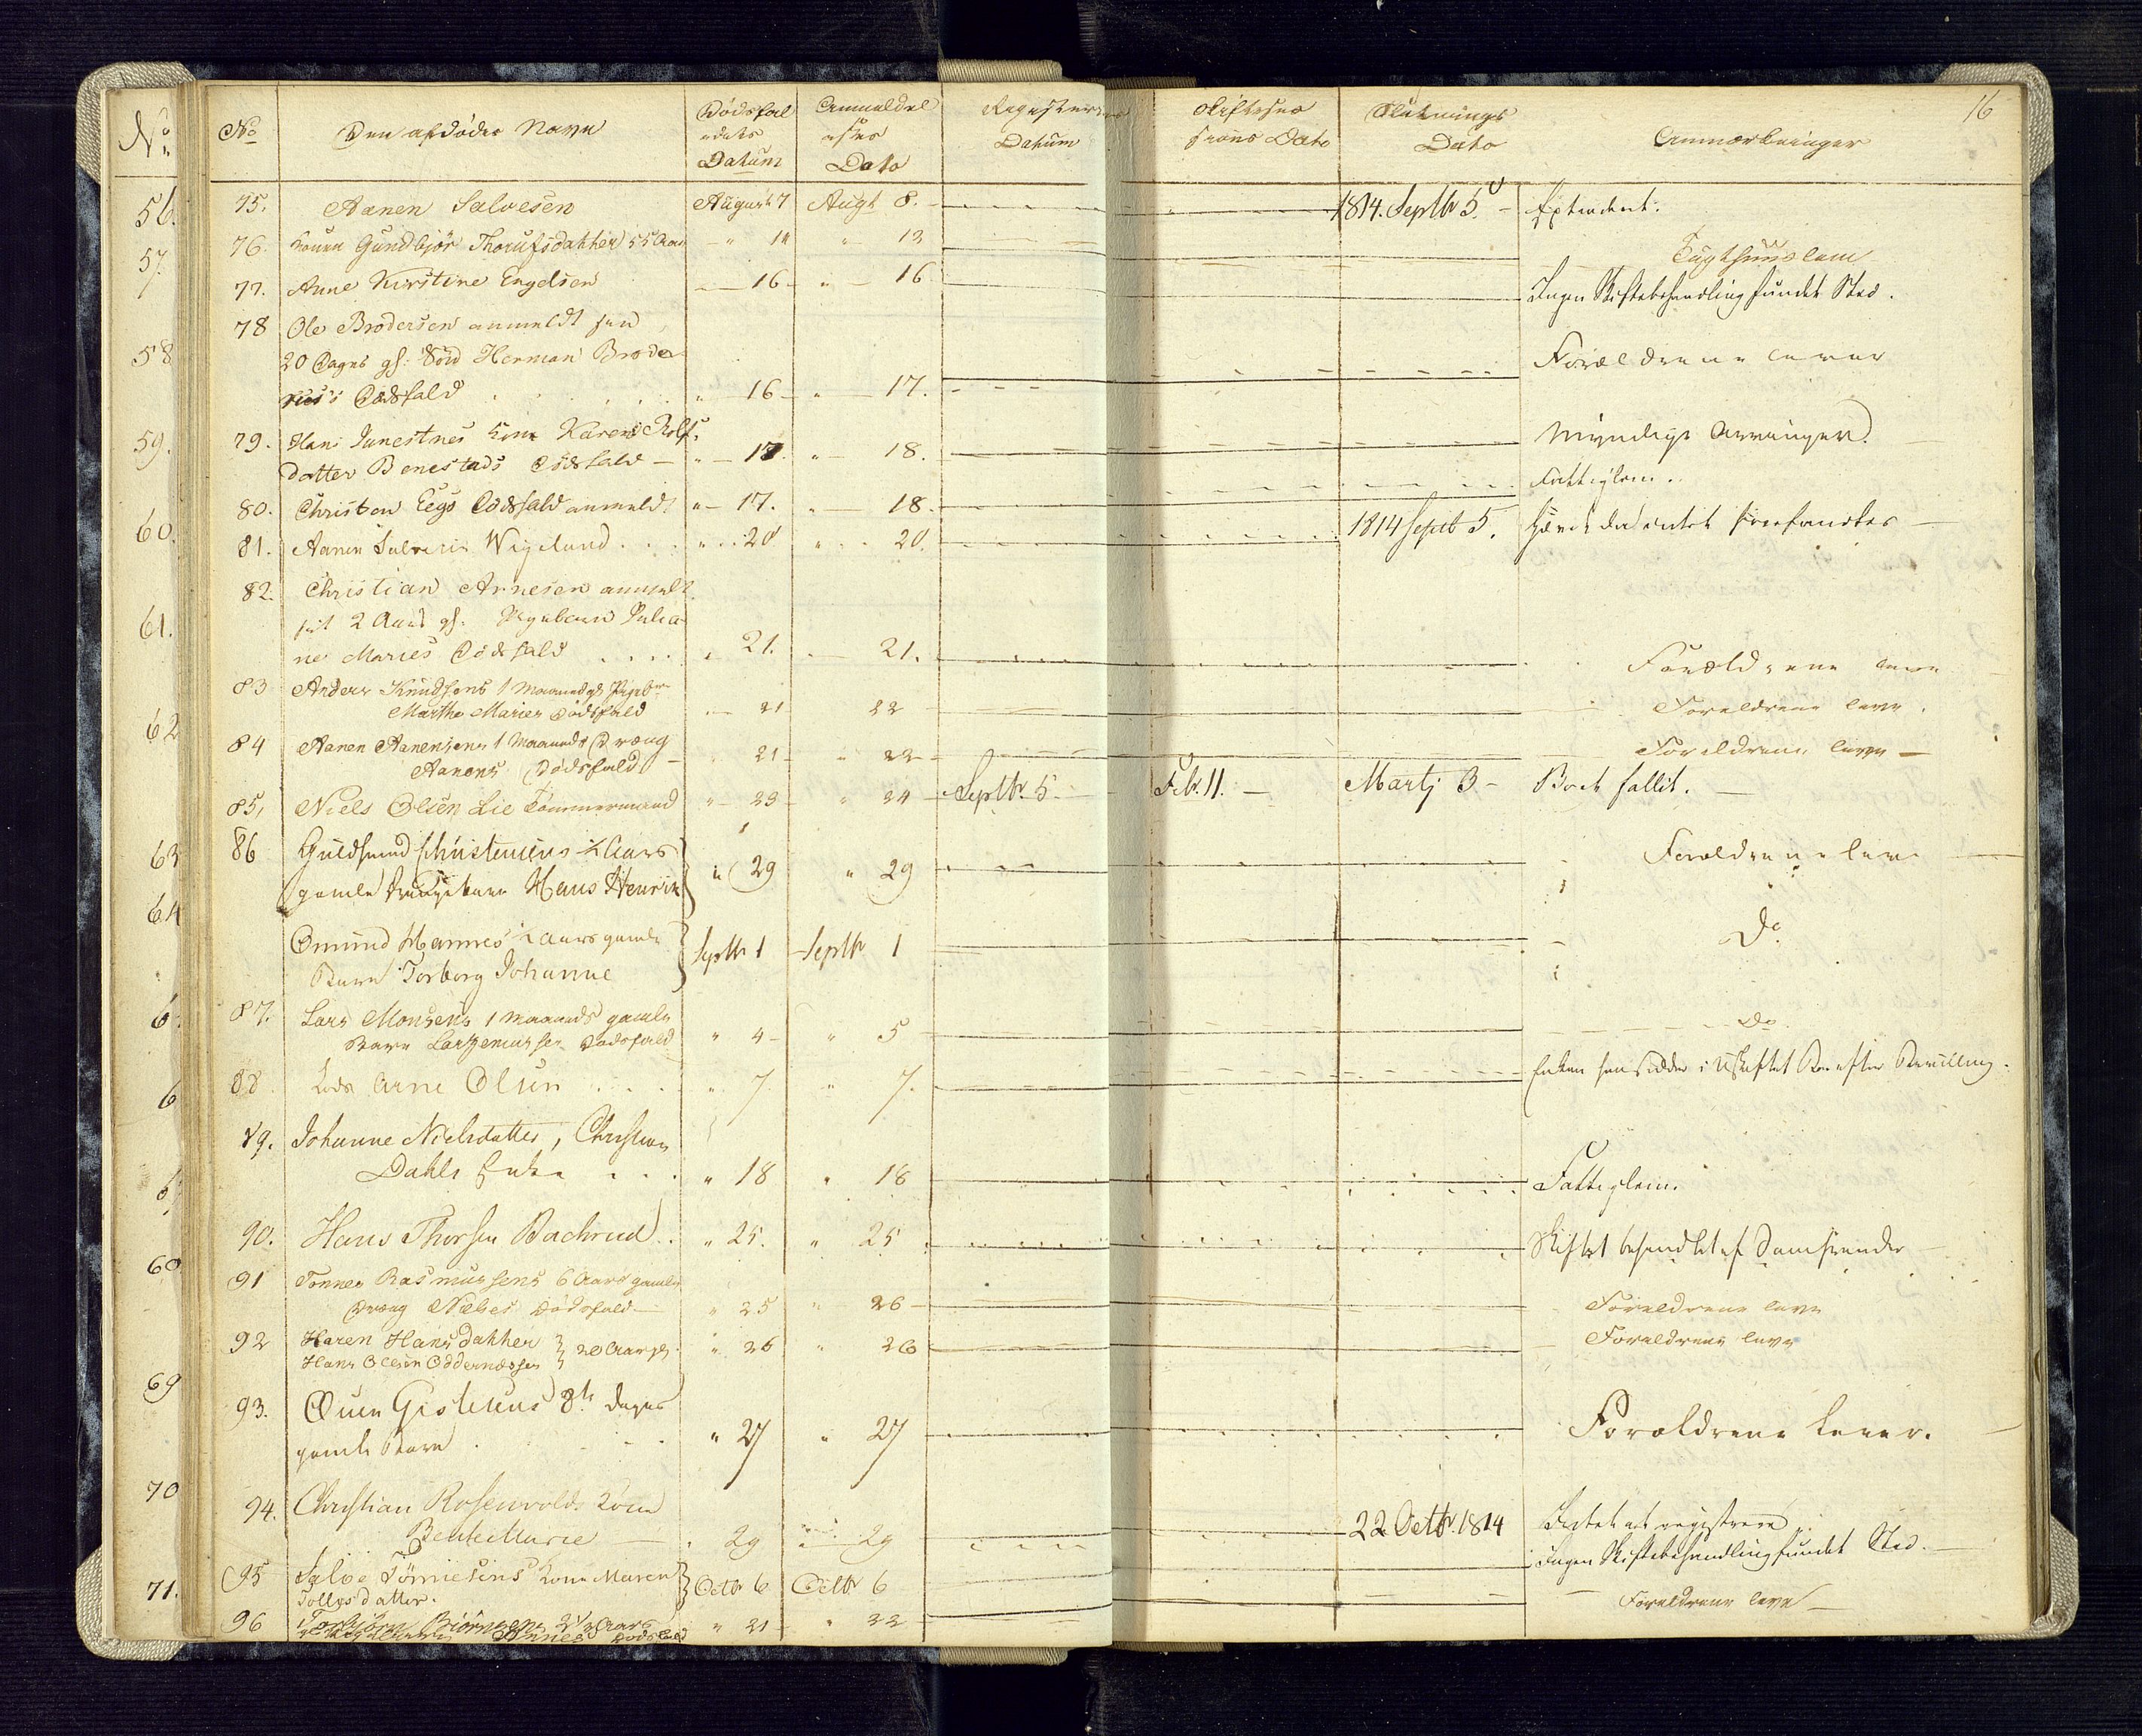 16
No
No
Den afdødes Navn
Dødsfal
dets
Datum
Anmeldel
sses
Dato
Registerings
Datum
Skiftesses
sions Dato
Slutnings
Dato
Anmærkninger
56.
75. Aanen Salvesen August 7 Augt 8. 1814. Septbr 5. Extradert.
57.
76. Konen Gundbjør Thorufsdatter 55 Aar " 12 " 13
Tugthuuslem
77. Anne Kirstine Engelsen 16 " 16. Ingen Skiftebehandling fundet Sted.
58
78 Ole Brodersen anmeldt sin
20 Dages gl. Søn Herman Broder
sens Dødsfald " 16 " 17. Forældrene lever
59.
79. Hans Junestnes Kone Karen Rolfs
datter Benestads Dødsfald " 17. " 18. Myndige Arvinger.
80. Christen Eegs Dødsfald anmeldt " 17. 18. Fattiglem.
60.
81. Aanen Salvesen Wigeland " 20 " 20. 1814 Septb 5. da intet forefandtes
82. Christian Arnesen anmeldt
61.
sit 2 Aars gl. Pigebarn Julia
ne Maries Dødsfald " 21. 21. Forældrene leve
83 Anders Knudsens 1 Maaneds gl. Pigeb
Marthe Maries Dødsfald 21 22 Foreldrene leve.
62
84 Aanen Aanensens 1 Maaneds Dreng
Aanens Dødsfald 21 " 22 Foreldrene leve
85, Niels Olsen Lie Tømmermand " 23 " 24 Septbr. 5. Febr. 11. Martj 3 Boet fallit.
63
86 Guldsmed Christensens ½ Aars
gamle Drengebarn Hans Henrik " 29 " 29 Forældrene leve
64
Omund Hannes ½ Aars gamle
Barn Torborg Johanne Septbr 1 Septbr 1 Do
87. Lars Monsens 1 Maaneds gamle
Barn Dødsfald " 4 " 5 Do
88. Lods Arne Olsen " 7 " 7. Enken hensidder i Uskiftet Boe efter Bevilling.
89. Johanne Nielsdatter, Christian
Dahls Enke " 18 " 18 Fattiglem.
90. Hans Thorsen Bachrud " 25. " 25 Skiftet behandlet af
60
91 Tønnes Rasmussens 6 Aars gamle
Dreng Nielses Dødsfald " 25 " 26 Foreldrene leve
92 Karen Hansdatter } 20 Aar gl.
Hans Olsen Oddernessen " 26 " 26 Foreldrene leve
69
93. Ouen Gistesens 8te Dages
gamle Barn " 27 " 27 Forældrene lever.
70
94. Christian Rosenvolds Kone
Bente Marie 29 29 22 Octbr. 1814 Intet at registrere
95 Salve Tømesens Kone Maren
Tollefsdatter. Octbr 6 Octbr 6 Ingen Skiftebehandling fundet Sted.
71.
96 Torbiørn Biørnsens 2½ Aars
Annes Dødsfald " 21 " 22 Foreldrene leve